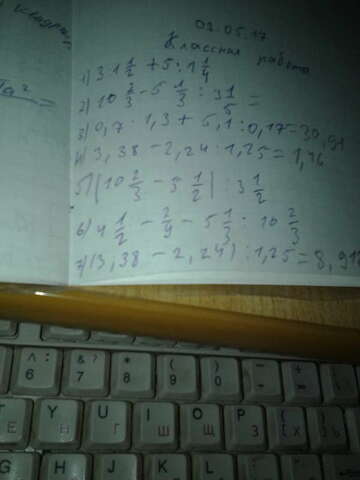 02.05.17
Классная работа
1) 3·1 1/2 + 5:1 1/4
2) 10 2/3 - 5 1/3 : 3 1/5 =
3) 0,7 · 1,3 + 5,1 : 0,17 = 30,91
4) 3,38 - 2,24 : 1,25 = 1,46
5) (10 2/3 - 5 1/2) : 3 1/2
6) 4 1/2 - 2/9 - 5 1/3 : 10 2/3
7) (13,38 - 2,24) : 1,25 = 8,912
^ : 6
& ? 7
* 8
( 9
) 0
- -
+ =
T Е
Y Н
U Г
I Ш
O Щ
P З
{ [ Х
} ]
G
H
J
K
L